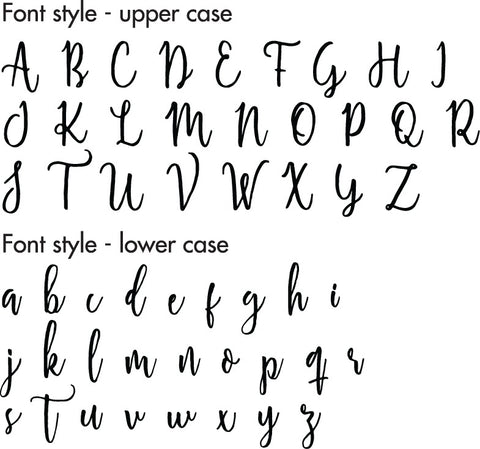 Font style - upper case
A B C D E F G H I
J K L M N O P Q R
S T U V W X Y Z
Font style - lower case
a b c d e f g h i
j k l m n o p q r
s t u v w x y z